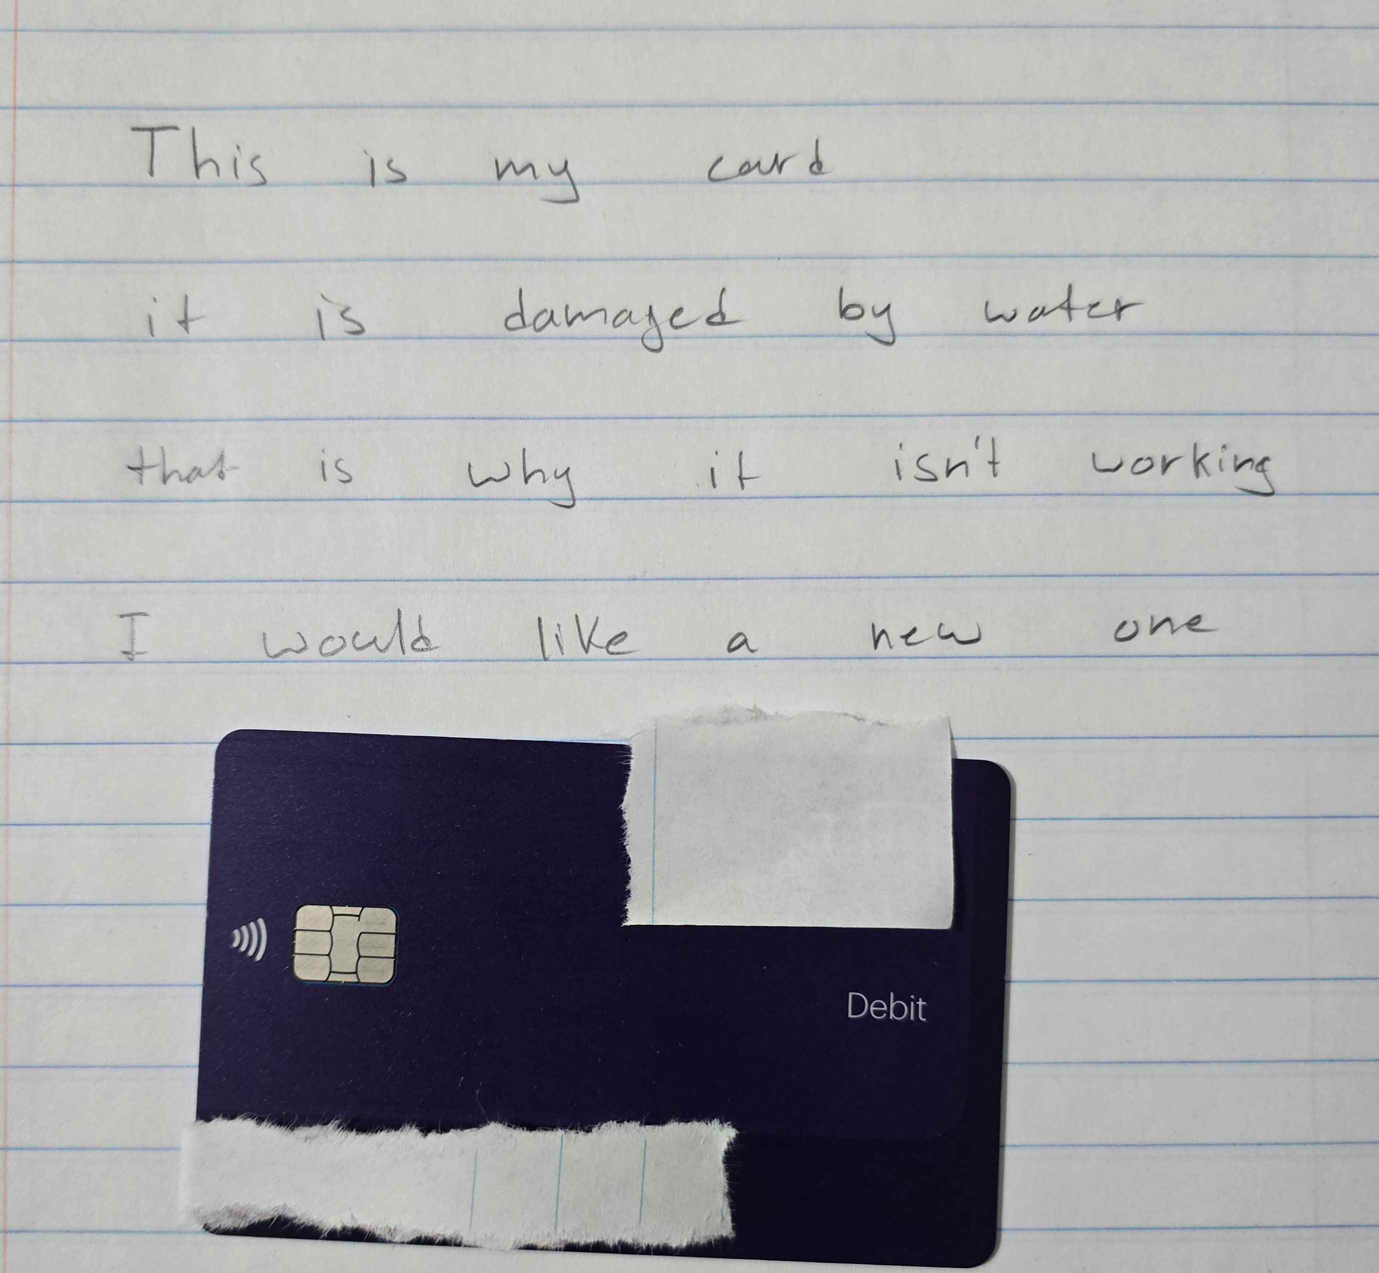 This is my card
it is damaged by water
that is why it isn't working
I would like a new one
Debit